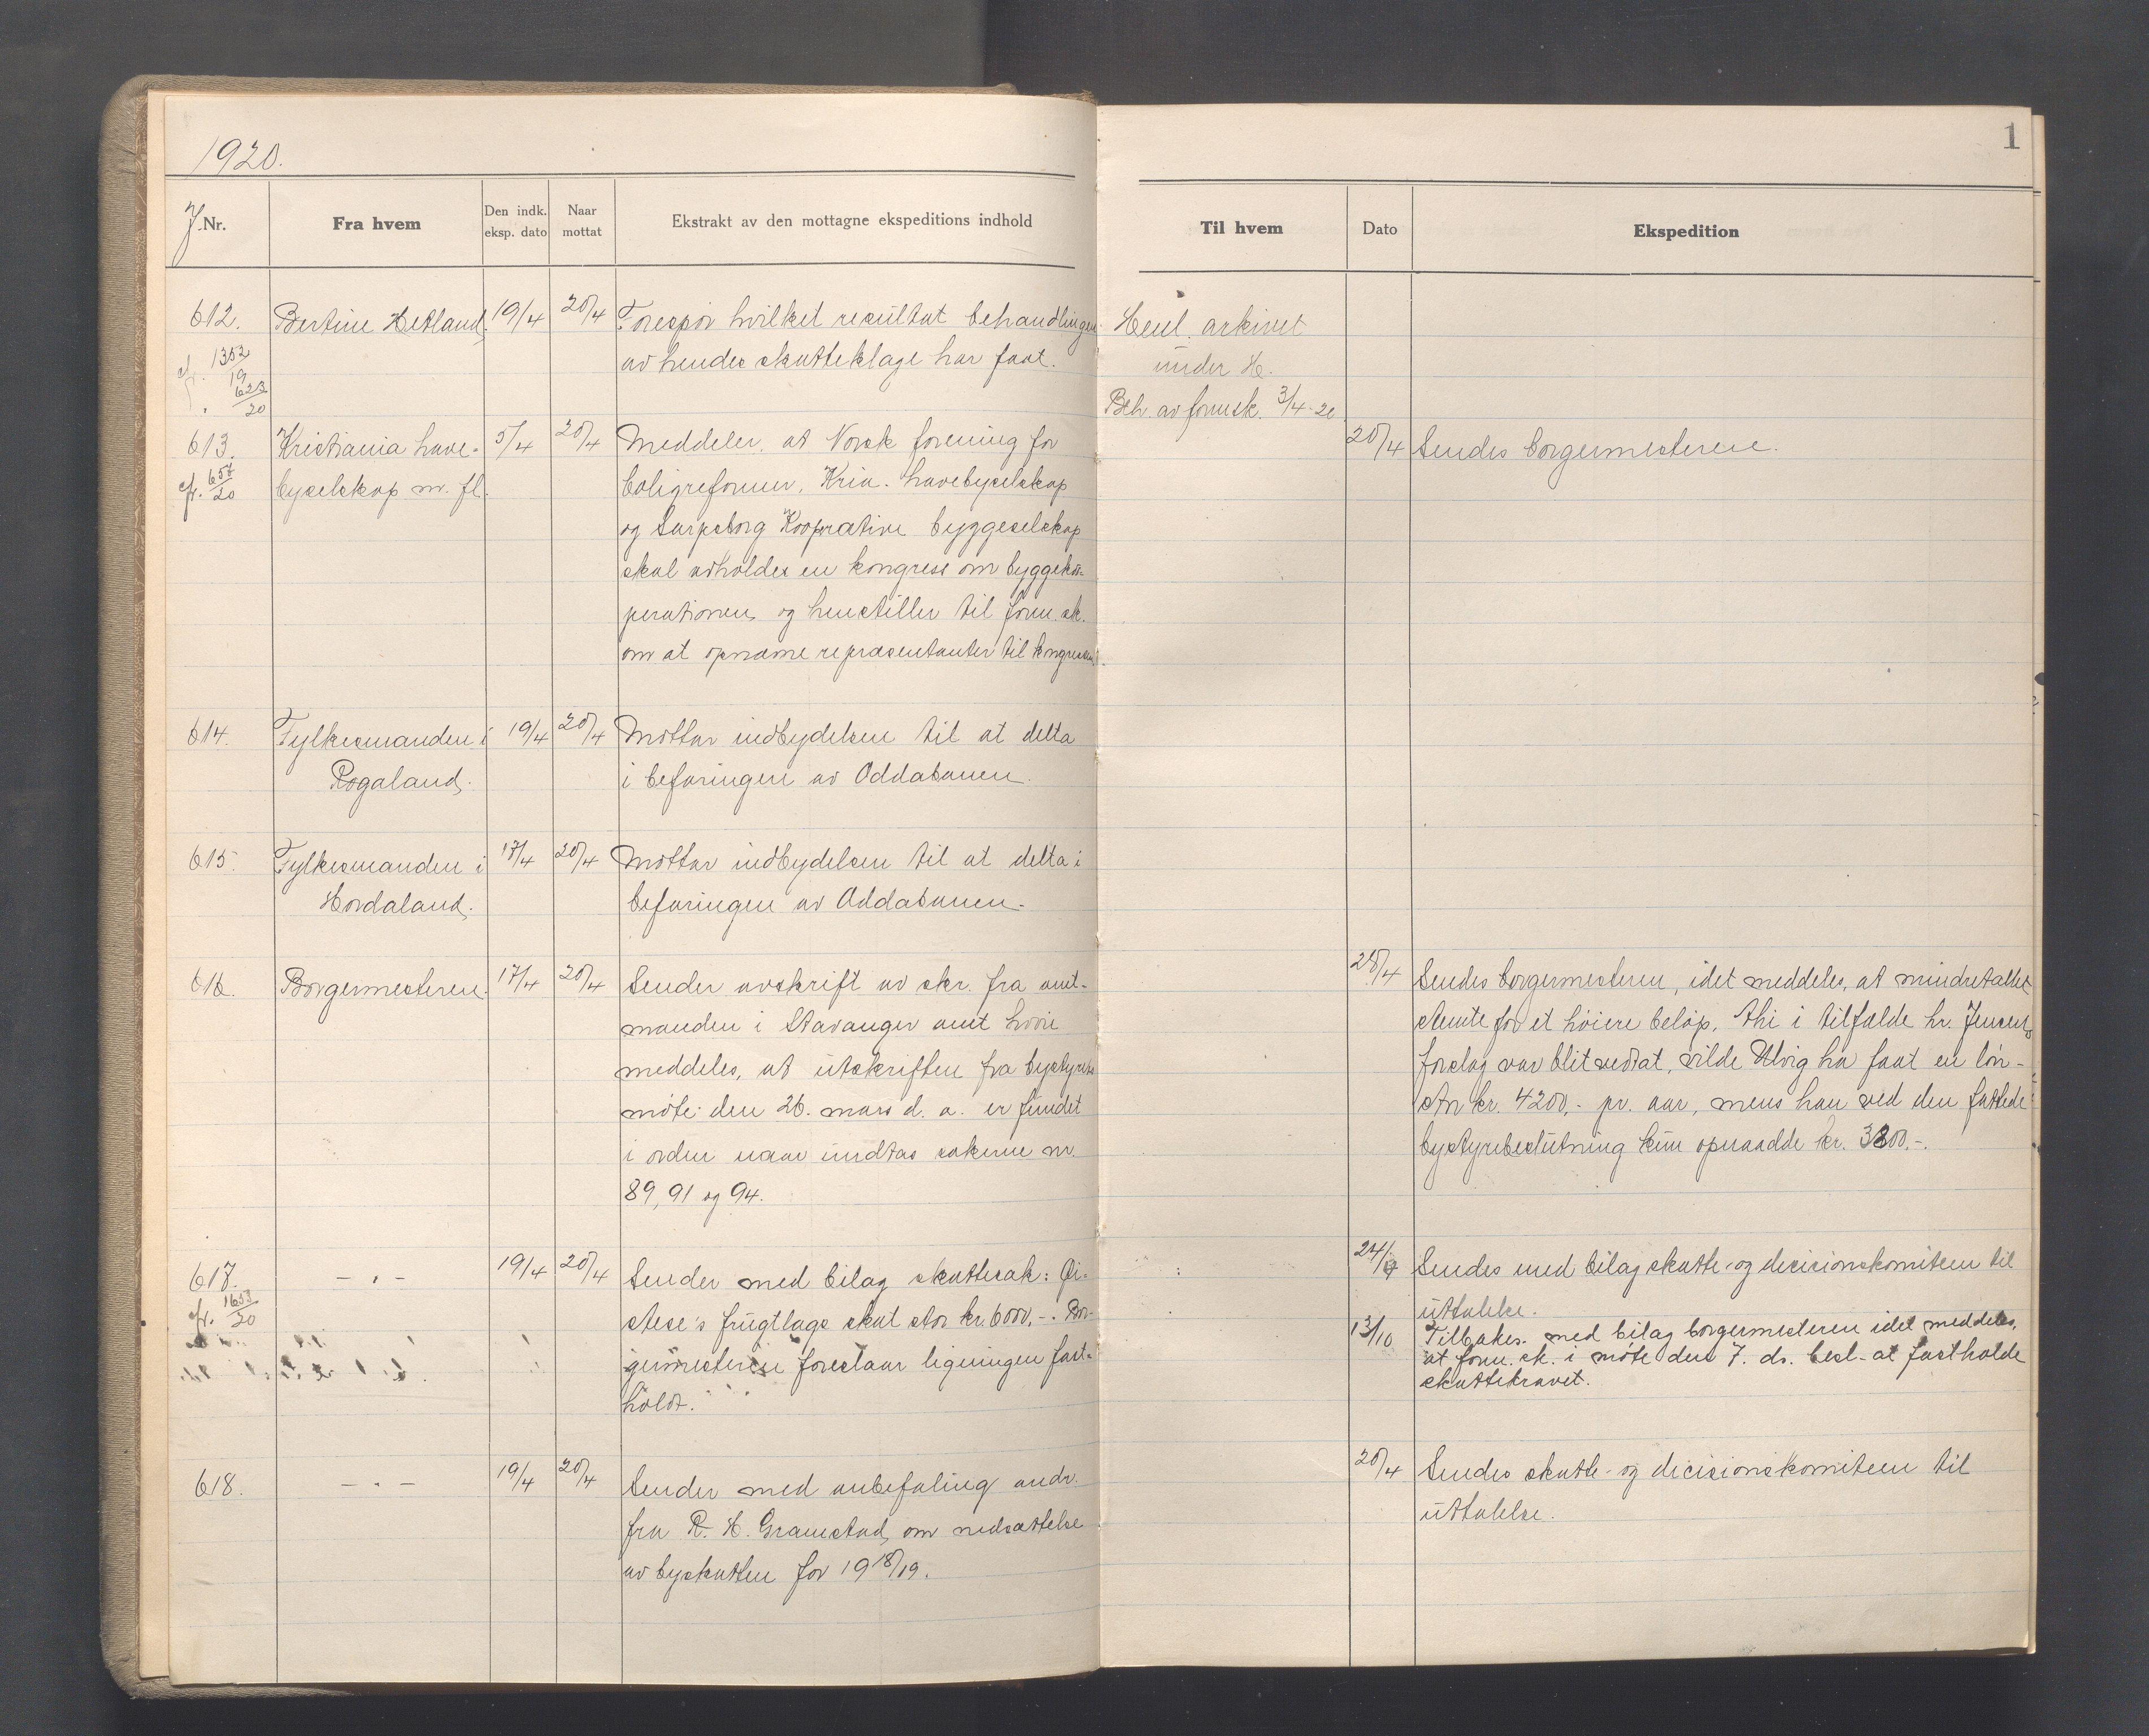 1920.
J. Nr.
Fra hvem
Den indk. eksp. dato
Naar mottat
Ekstrakt av den mottagne ekspeditions indhold
612.
cfr. 1353/19
" 623/20
Bertine Hetland.
19/4
20/4
Forespør hvilket resultat behandlingen
av hendes skatteklage har faat.
613.
cfr. 657/20
Kristiania have-
byselskap m. fl.
5/4
20/4
Meddeler, at Norsk forening for
boligreformer, Kria. havebyselskap
og Sarpsborg Kooprative byggeselskap
skal avholdes en kongress om byggeko-
perationen, og henstiller til form.sk.
om at opnævne repræsentanter til kongressen.
614.
Fylkesmanden i
Rogaland.
19/4
20/4
Mottar indbydelsen til at delta
i befaringen av Oddabanen.
615.
Fylkesmanden i
Hordaland.
17/4
20/4
Mottar indbydelsen til at delta i
befaringen av Oddabanen.
616.
Borgermesteren.
17/4
20/4
Sender avskrift av skr. fra amt-
manden i Stavanger amt hvori
meddeles, at utskriften fra bystyrets
møte den 26. mars d. a. er fundet
i orden naar undtas sakerne nr.
89, 91 og 94.
617.
cfr. 1653/20
— " —
19/4
20/4
Sender med bilag skattesak: Øi-
stese's frugtlags skat stor kr. 6000,-. Bor-
germesteren foreslaar ligningen fast-
holdt.
618.
— " —
19/4
20/4
Sender med anbefaling andr.
fra R. H. Gramstad, om nedsættelse
av byskatten for 1918/19.
1
Til hvem
Dato
Ekspedition
Henl. arkivet
under H.
Beh. av formsk. 3/4-20
20/4
Sendes borgermesteren.
28/4
Sendes borgermesteren, idet meddeles, at mindretallet
stemte for et høiere beløp, thi i tilfælde hr. Jensens
forslag var blit vedtat, vilde Ulvig ha faat en løn-
stor kr. 4200,- pr. aar, mens han ved den fattede
bystyrebeslutning kun opnaadde kr. 3800.-.
24/4
Sendes med bilag skatte- og decisionskomiteen til
uttalelse.
13/10
Tilbakes. med bilag borgermesteren idet meddeles,
at form. sk. i møte den 7. ds. besl. at fastholde
skattekravet.
20/4
Sendes skatte- og decisionskomiteen til
uttalelse.